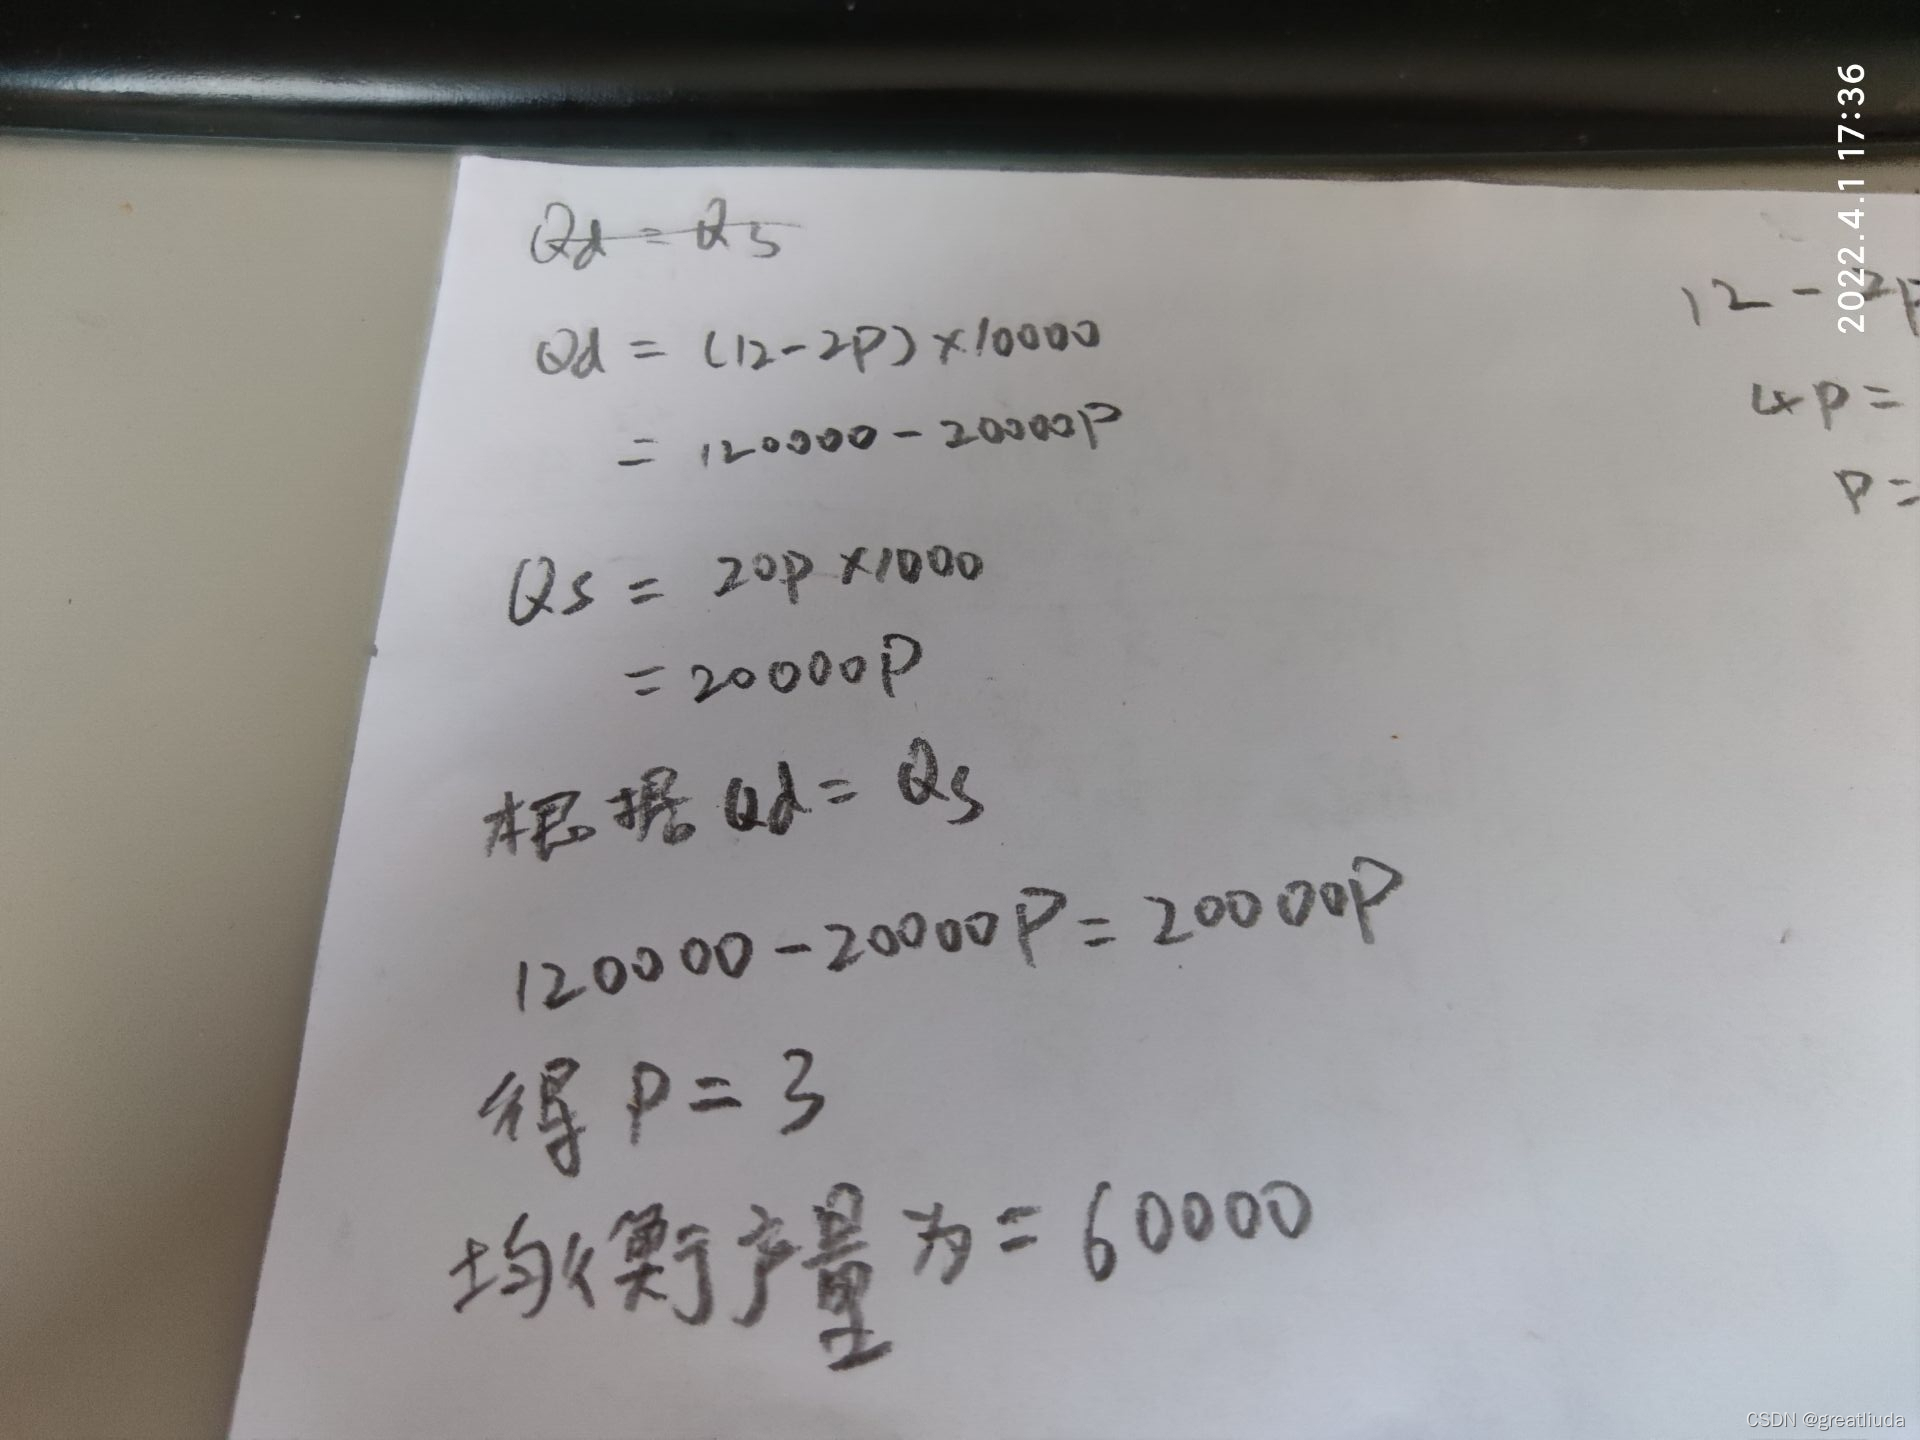 Qd = Qs
Qd = (12-2P)×10000
= 120000-20000P
Qs = 20P×1000
= 20000P
根据 Qd = Qs
120000-20000P=20000P
得 P = 3
均衡产量为=60000
12-2P
4P=
P=
2022.4.1 17:36
CSDN @greatliuda